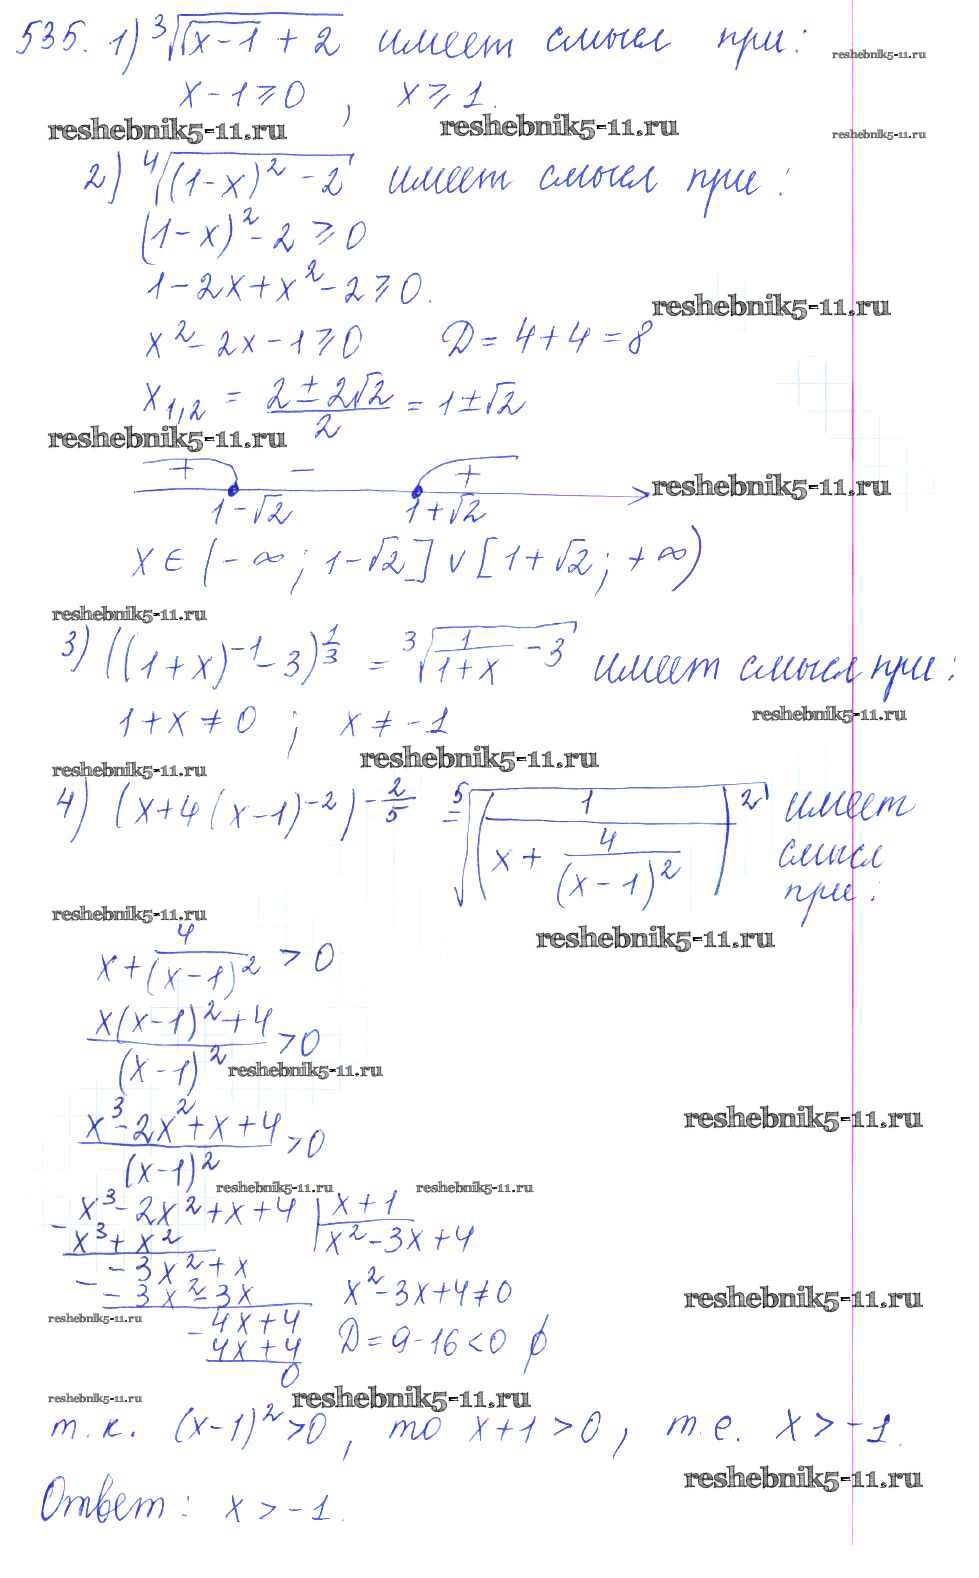 535. 1) ∛(√(x-1) + 2) имеет смысл при:
reshebnik5-11.ru
x-1 ≥ 0, x ≥ 1.
reshebnik5-11.ru reshebnik5-11.ru reshebnik5-11.ru
2) ⁴√((1-x)² - 2) имеет смысл при:
(1-x)² - 2 ≥ 0
1 - 2x + x² - 2 ≥ 0.
reshebnik5-11.ru
x² - 2x - 1 ≥ 0 D = 4 + 4 = 8
x₁,₂ = (2 ± 2√2)/2 = 1 ± √2
reshebnik5-11.ru
+ - +
reshebnik5-11.ru
1-√2 1+√2
x ∈ (-∞; 1-√2] ∨ [1+√2; +∞)
reshebnik5-11.ru
3) ((1+x)⁻¹ - 3)^(1/3) = ∛(1/(1+x) - 3) имеет смысл при:
1 + x ≠ 0; x ≠ -1
reshebnik5-11.ru
reshebnik5-11.ru reshebnik5-11.ru
4) (x+4(x-1)⁻²)^(-2/5) = ⁵√((1/(x + 4/(x-1)²))²) имеет
смысл
при:
reshebnik5-11.ru
reshebnik5-11.ru
x + 4/(x-1)² > 0
(x(x-1)² + 4)/(x-1)² > 0
reshebnik5-11.ru
reshebnik5-11.ru
(x³ - 2x² + x + 4)/(x-1)² > 0
reshebnik5-11.ru reshebnik5-11.ru
- x³ - 2x² + x + 4 | x + 1
x³ + x² | x² - 3x + 4
- -3x² + x
-3x² - 3x x² - 3x + 4 ≠ 0
reshebnik5-11.ru
reshebnik5-11.ru
- 4x + 4 D = 9 - 16 < 0 ∅
4x + 4
0
reshebnik5-11.ru reshebnik5-11.ru
т.к. (x-1)² > 0, то x + 1 > 0, т.е. x > -1.
reshebnik5-11.ru
Ответ: x > -1.